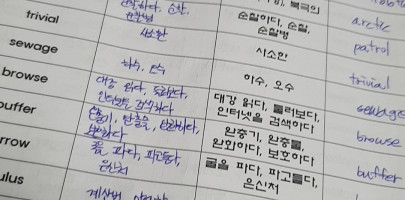 순찰하다, 순찰, 북극의
순찰병
순찰하다, 순찰,
순찰병
arctic
trivial
사소한
사소한
patrol
sewage
하수, 오수
하수, 오수
trivial
browse
대강 읽다, 둘러보다,
인터넷을 검색하다
대강 읽다, 둘러보다,
인터넷을 검색하다
sewage
buffer
완충기, 완충물, 완화하다,
보호하다
완충기, 완충물,
완화하다, 보호하다
browse
rrow
굴을 파다, 파고들다,
은신처
굴을 파다, 파고들다,
은신처
buffer
ulus
계산법